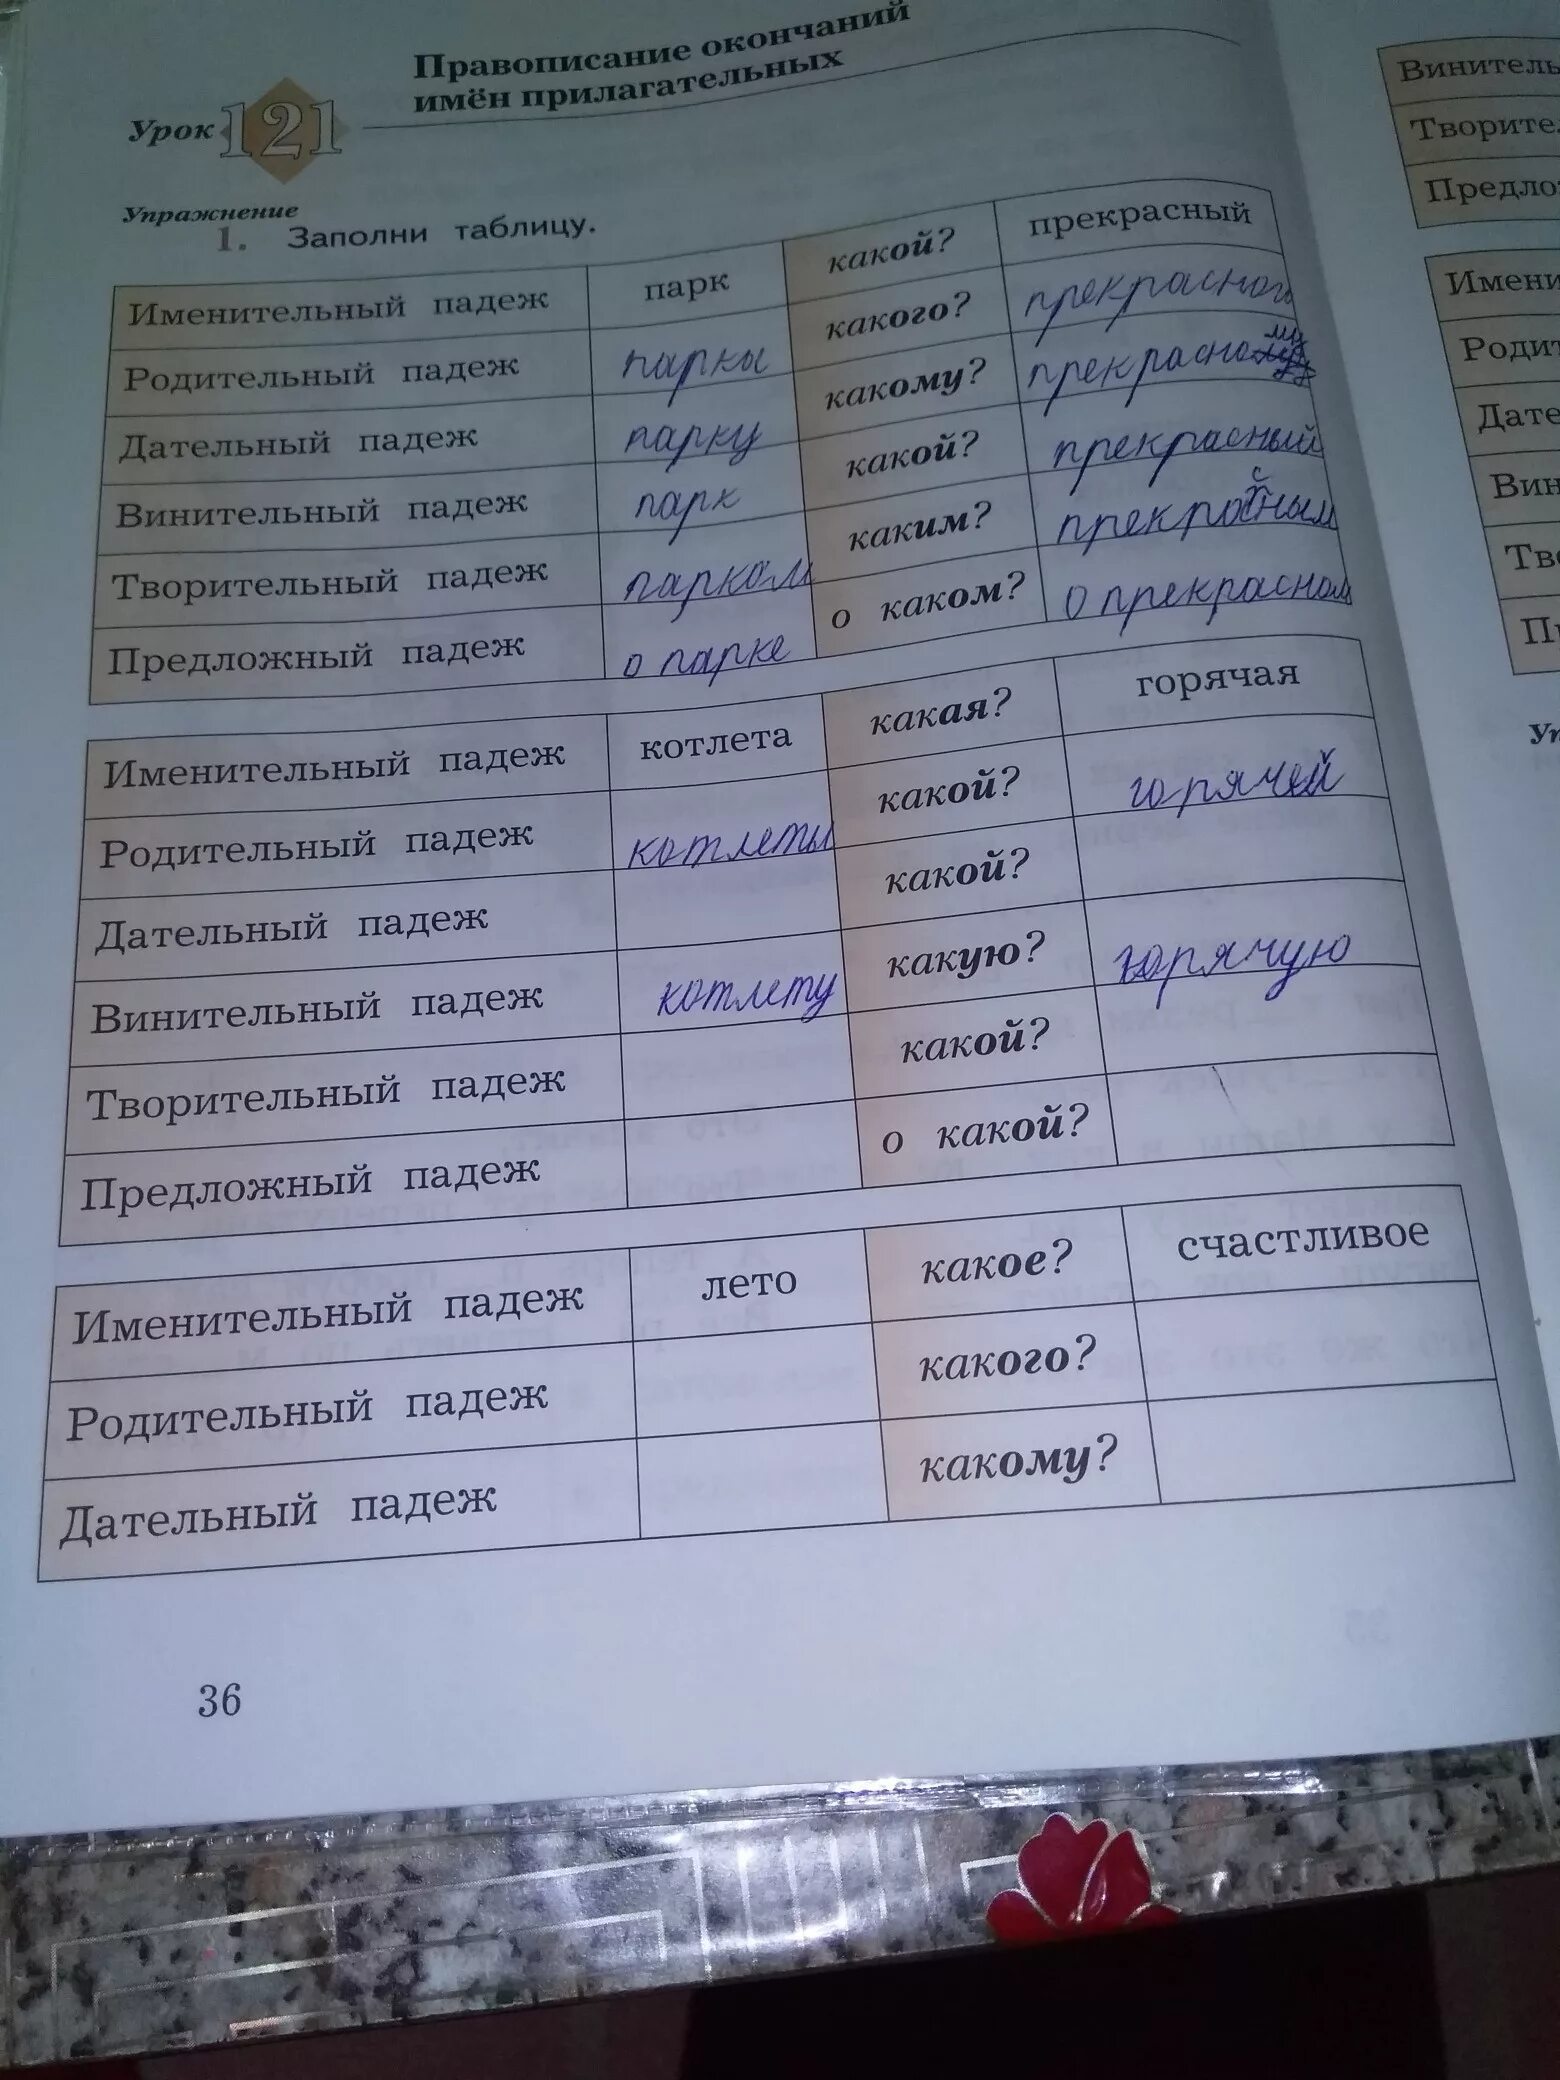 Правописание окончаний
имён прилагательных
Урок 121
Упражнение
1. Заполни таблицу.
Именительный падеж парк какой? прекрасный
Родительный падеж парки какого? прекрасного
Дательный падеж парку какому? прекрасному
Винительный падеж парк какой? прекрасный
Творительный падеж парком каким? прекрасным
Предложный падеж о парке о каком? о прекрасном
Именительный падеж котлета какая? горячая
Родительный падеж котлеты какой? горячей
Дательный падеж какой?
Винительный падеж котлету какую? горячую
Творительный падеж какой?
Предложный падеж о какой?
Именительный падеж лето какое? счастливое
Родительный падеж какого?
Дательный падеж какому?
36
Винитель
Творите
Предло
Имени
Родит
Дате
Вин
Тв
П
Уп